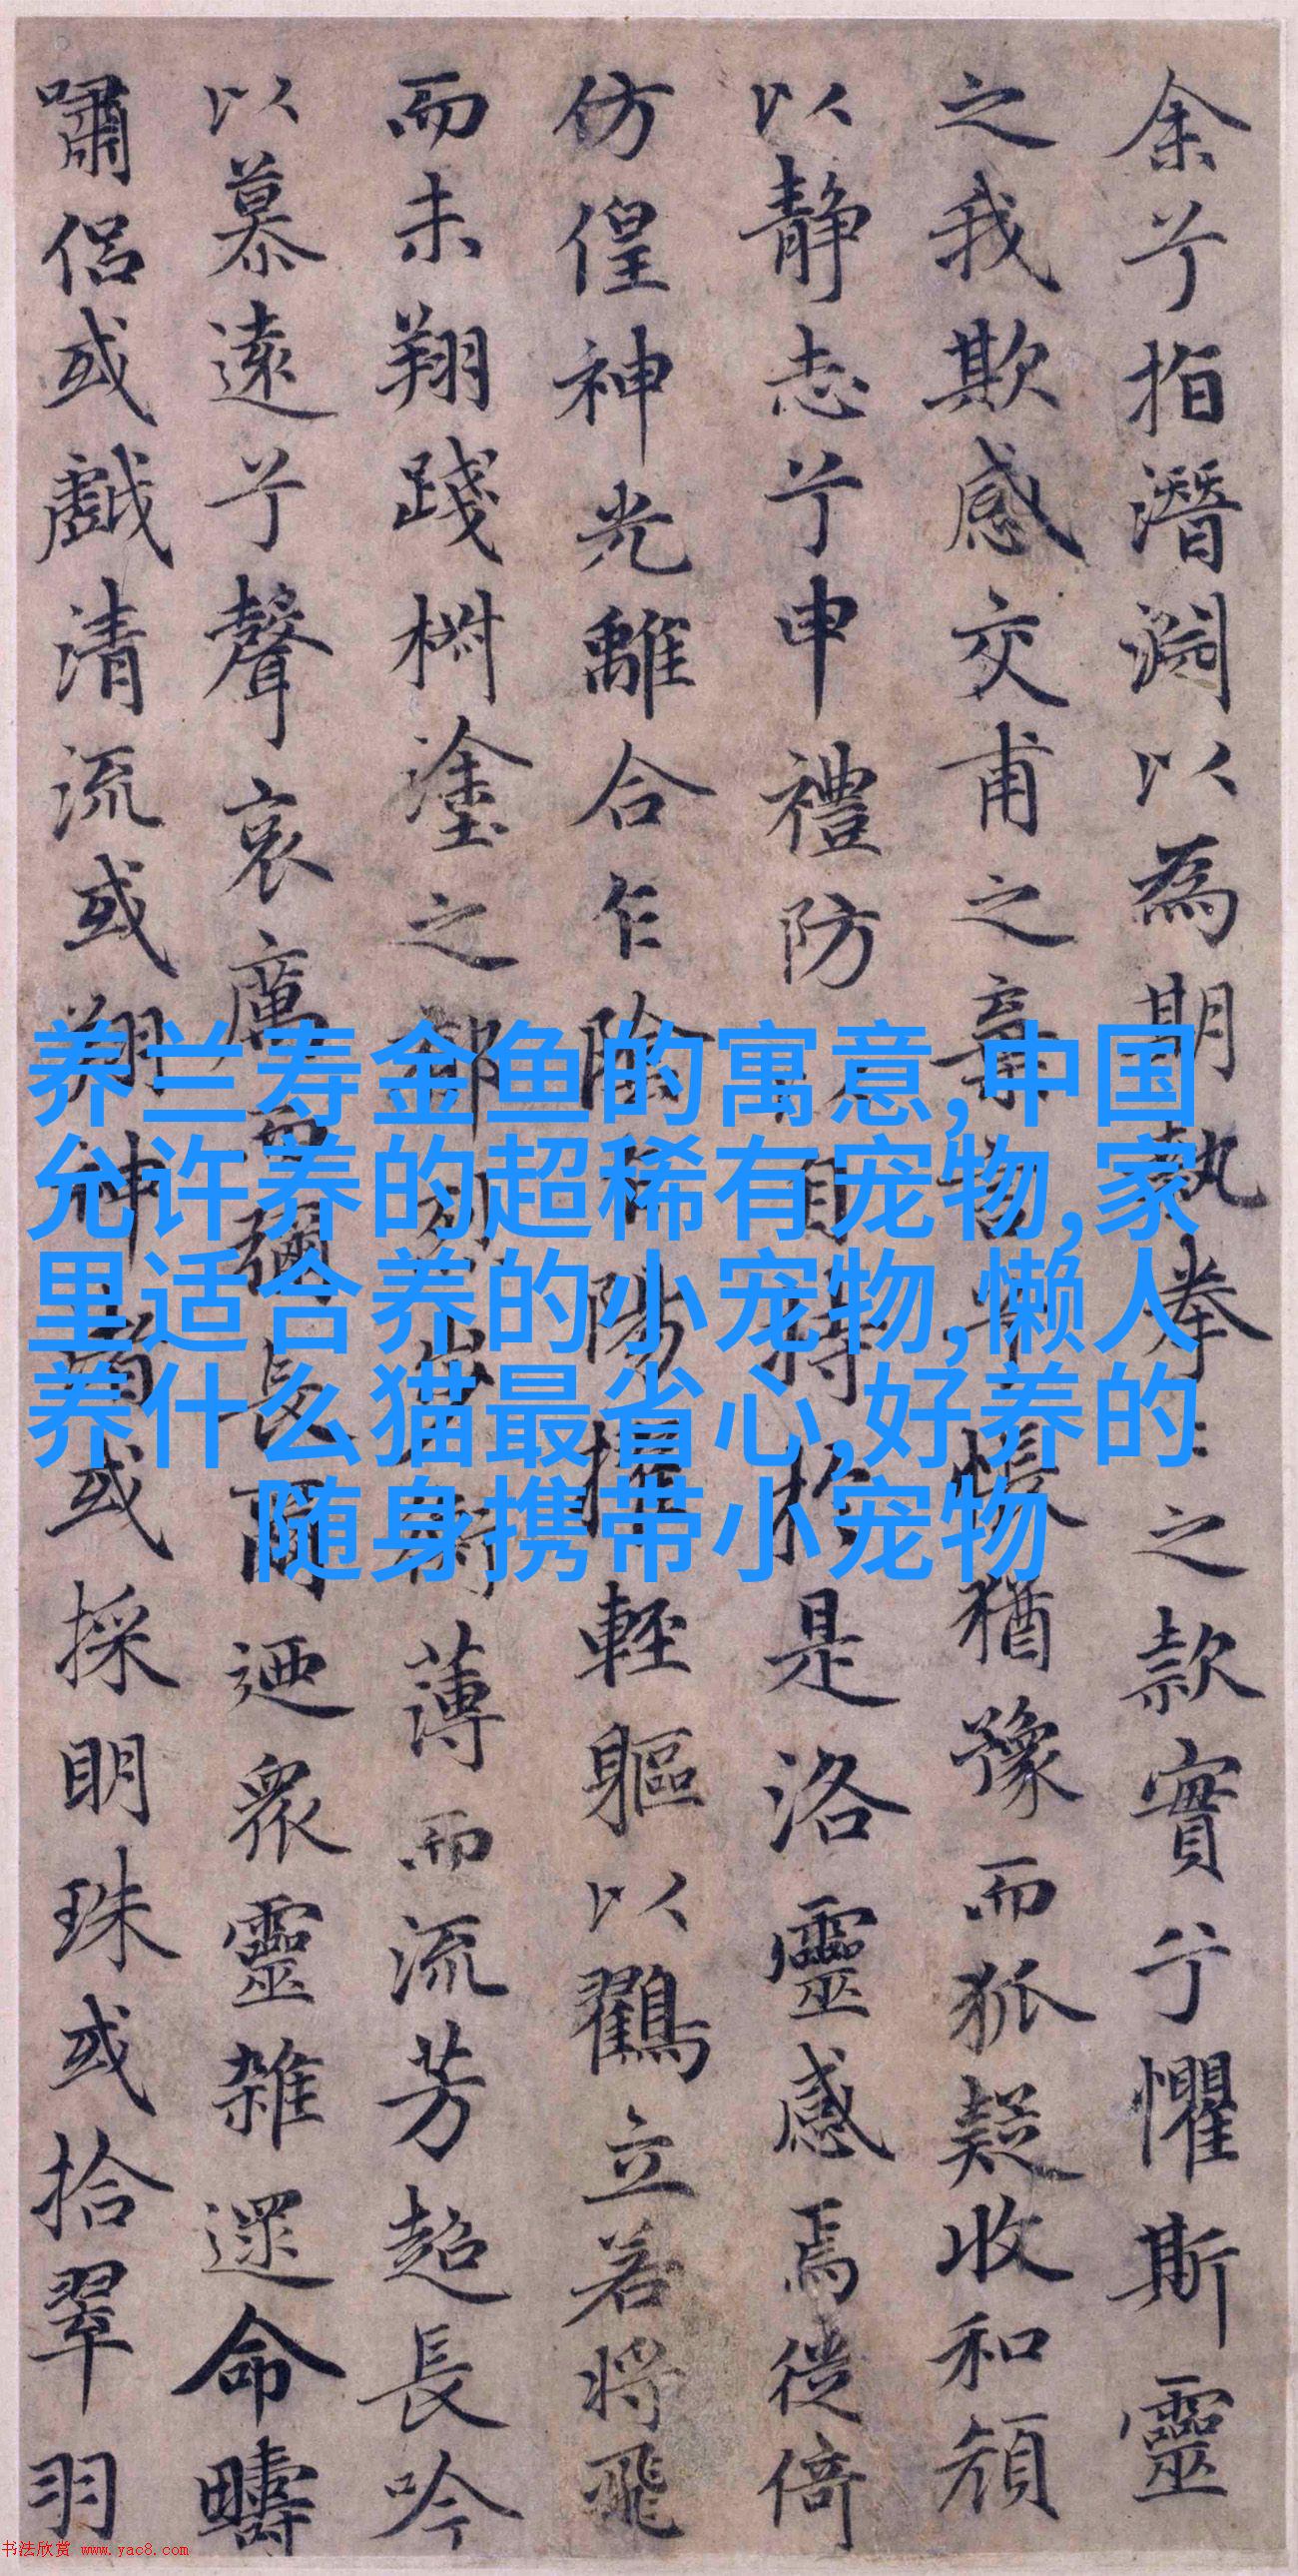 余兮指潛淵以為期執拳〻之款實兮懼斯靈
之我欺感交甫之棄言兮悵猶豫而狐疑收和顏
以靜志兮申禮防以自持於是洛靈感焉徙倚
仿偟神光離合乍陰乍陽擢輕軀以鶴立若將飛
而未翔踐椒塗之郁烈步蘅薄而流芳超長吟
以慕遠兮聲哀厲而彌長爾迺眾靈雜遝命疇
嘯侶或戲清流或翔神渚或採明珠或拾翠羽
养兰寿金鱼的寓意,中国
允许养的超稀有宠物,家
里适合养的小宠物,懒人
养什么猫最省心,好养的
随身携带小宠物
书法欣赏 www.yac8.com